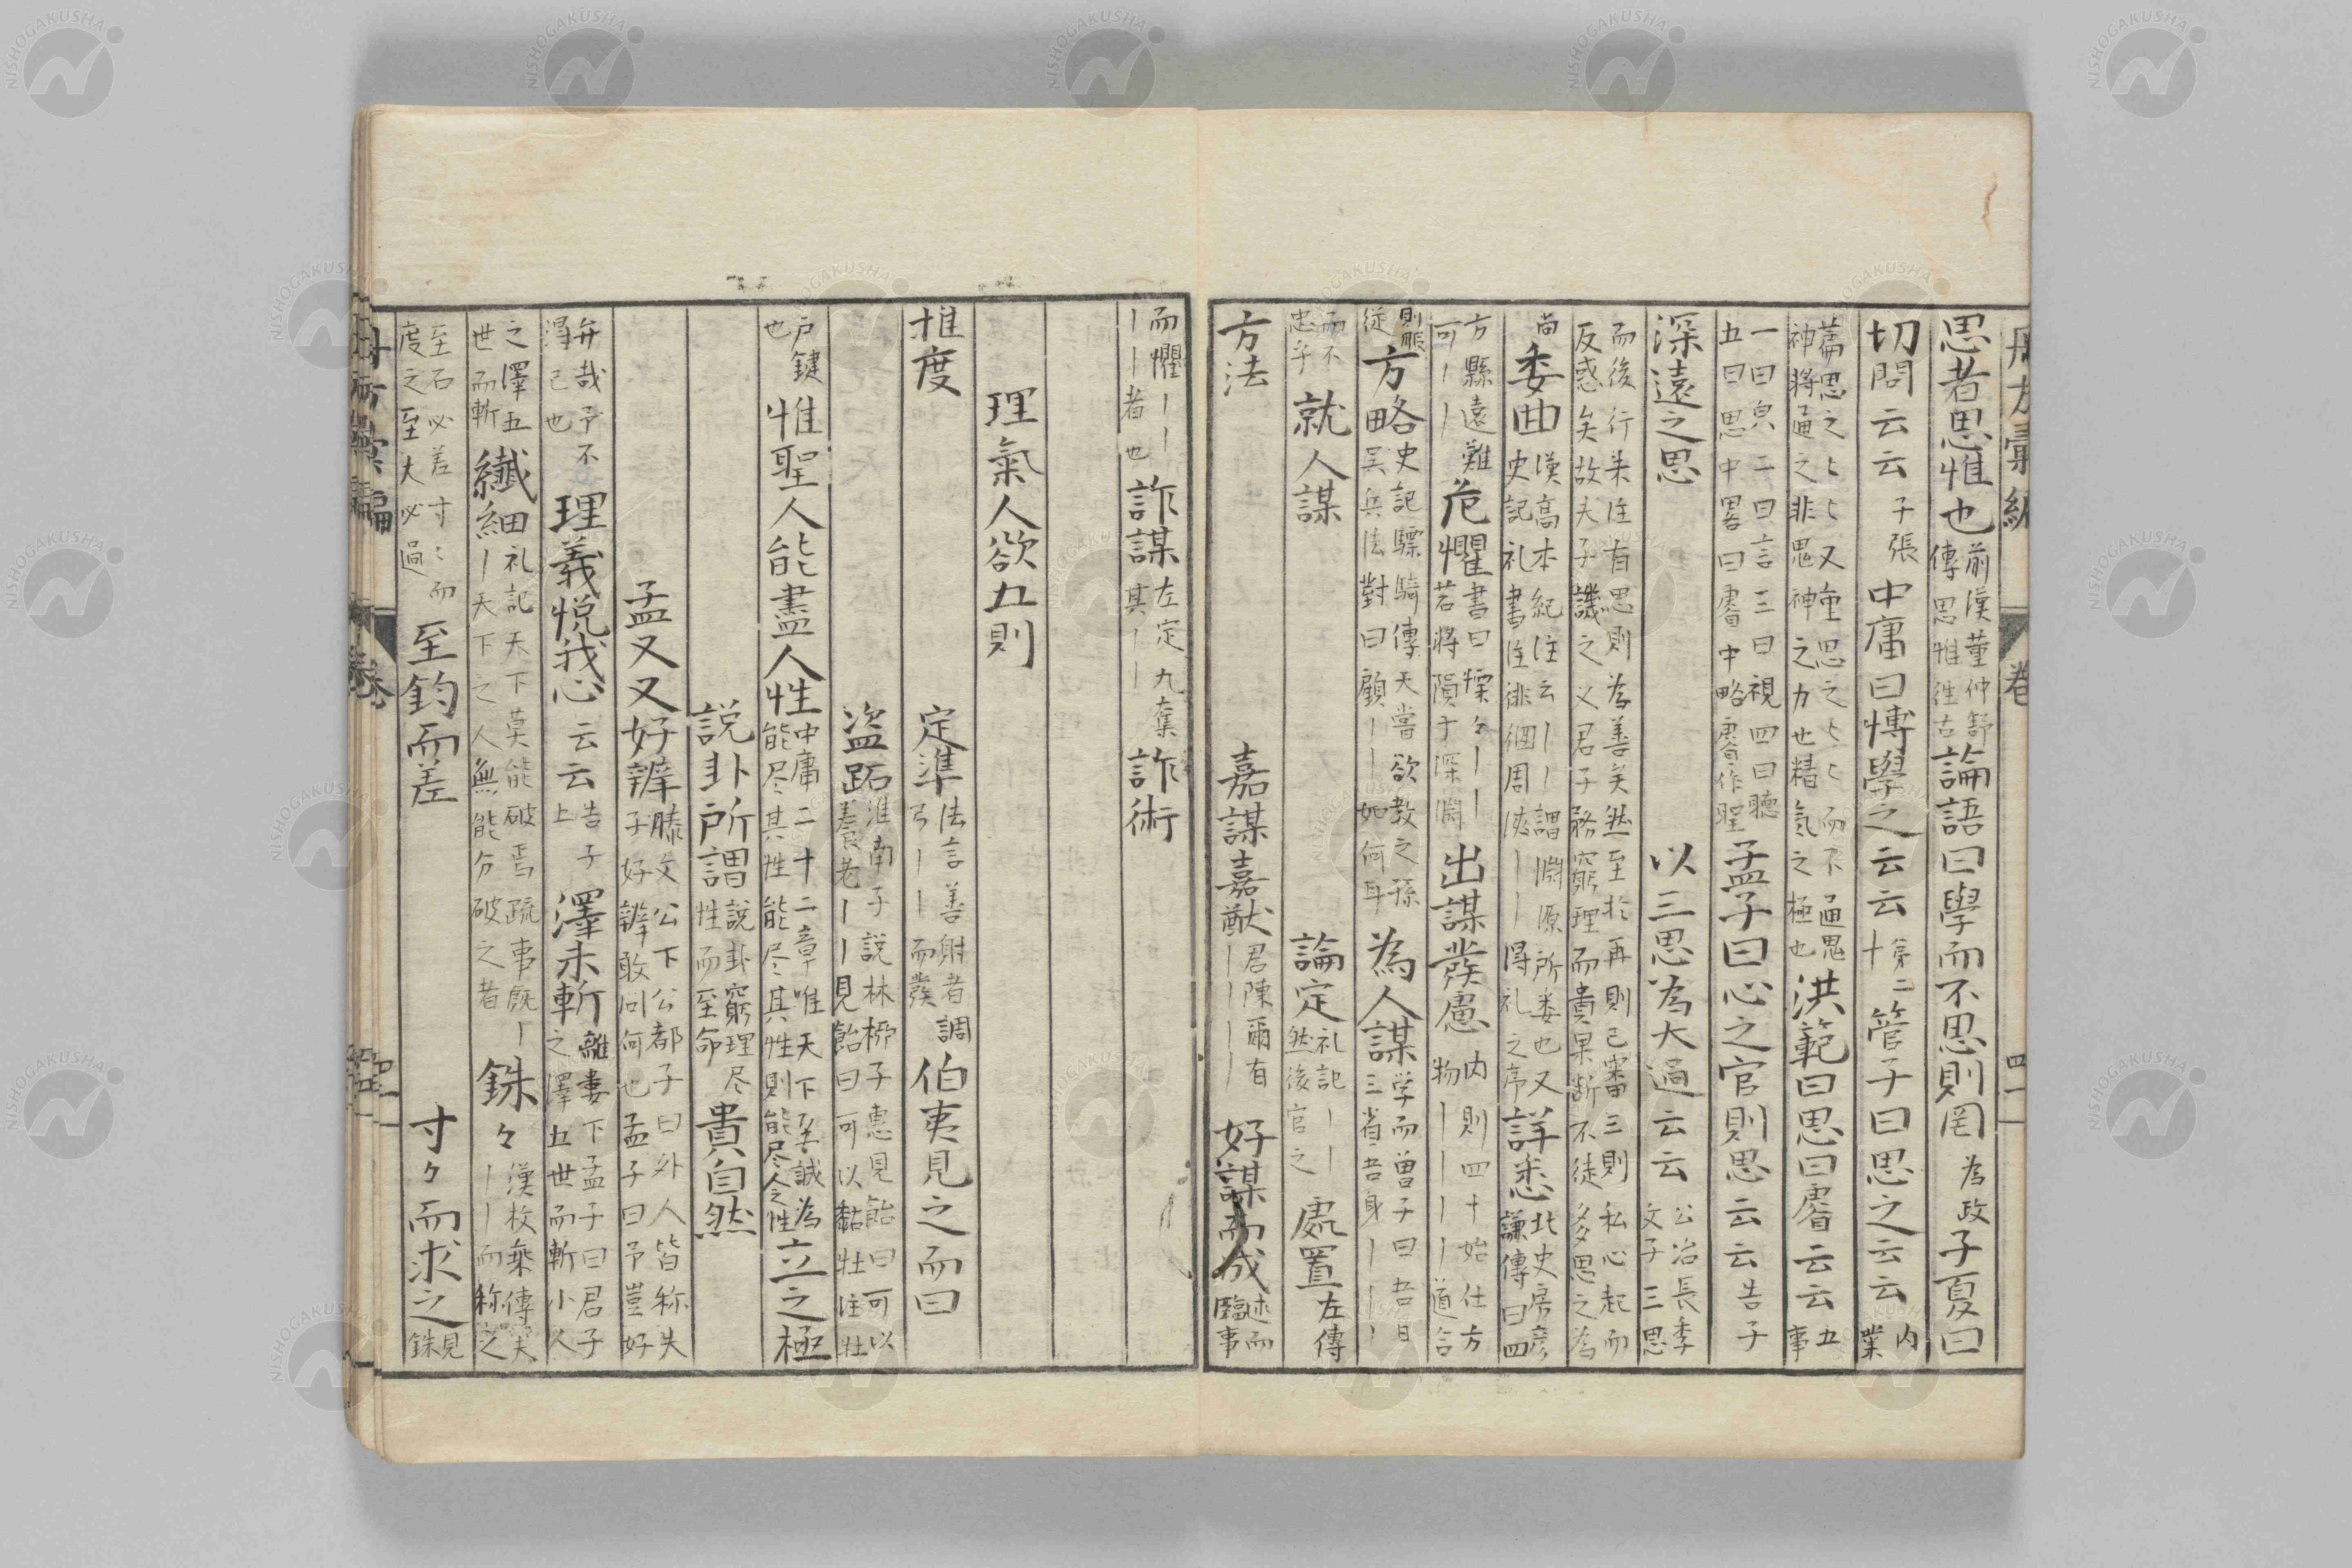 思者思惟也 前漢董仲舒傳思惟往古 論語曰學而不思則罔 為政 子夏曰
切問云云 子張 中庸曰博學之云云 第二十 管子曰思之云云 内業
篇思之々々又重思之々々而不通鬼神將通之非思神之力也精氣之極也 洪範曰思曰睿云云 五事
一曰皃二曰言三曰視四曰聽五曰思中畧曰睿中略睿作聖 孟子曰心之官則思云云 告子
深遠之思 以三思為大過云云 公冶長季文子三思
而後行朱注有思則為善矣然至於再則已審三則私心起而反惑矣故夫子譏之又君子務窮理而貴果斷不徒多思之為
尚 委曲 漢高本紀注云丨丨謂淵源所委也又史記礼書注徘徊周浹丨丨得礼之序 詳悉 北史房彦謙傳曰四
方縣遠難可丨丨 危懼 書曰慄々丨丨若將隕于深淵 出謀發慮 内則四十始仕方物丨丨丨丨道合
則服從 方略 史記驃騎傳天嘗欲教之孫吴兵法對曰顧丨丨如何耳 為人謀 学而曽子曰吾日三省吾身丨丨丨
而不忠乎 就人謀 論定 礼記丨丨然後官之 處置 左傳
方法 嘉謀嘉猷 君陳爾有丨丨丨丨 好謀而成 述而臨事
而懼丨丨丨丨者也 詐謀 左定九奮其丨丨 詐術
理氣人欲五則
推度 定準 法言善射者調弓丨丨而發 伯夷見之而曰
盗跖 淮南子説林栁子惠見飴曰可以養老丨丨見飴曰可以黏牡注牡
户鍵也 惟聖人能盡人性 中庸二十二章唯天下至誠為能尽其性能尽其性則能尽人之性 立之極
説卦所謂 説卦窮理尽性而至命 貴自然
孟又又好辨 滕文公下公都子曰外人皆称夫子好辨敢问何也孟子曰予豈好
弁哉予不得已也 理義悦我心云云 告子上 澤未斬 離婁下孟子曰君子之澤五世而斬小人
之澤五世而斬 纎細 礼記天下莫能破焉疏事既丨丨天下之人無能分破之者 銖々 漢枚乗傳夫丨丨而称之
至石必差寸々而度之至丈必過 至鈞而差 寸々而求之 見銖